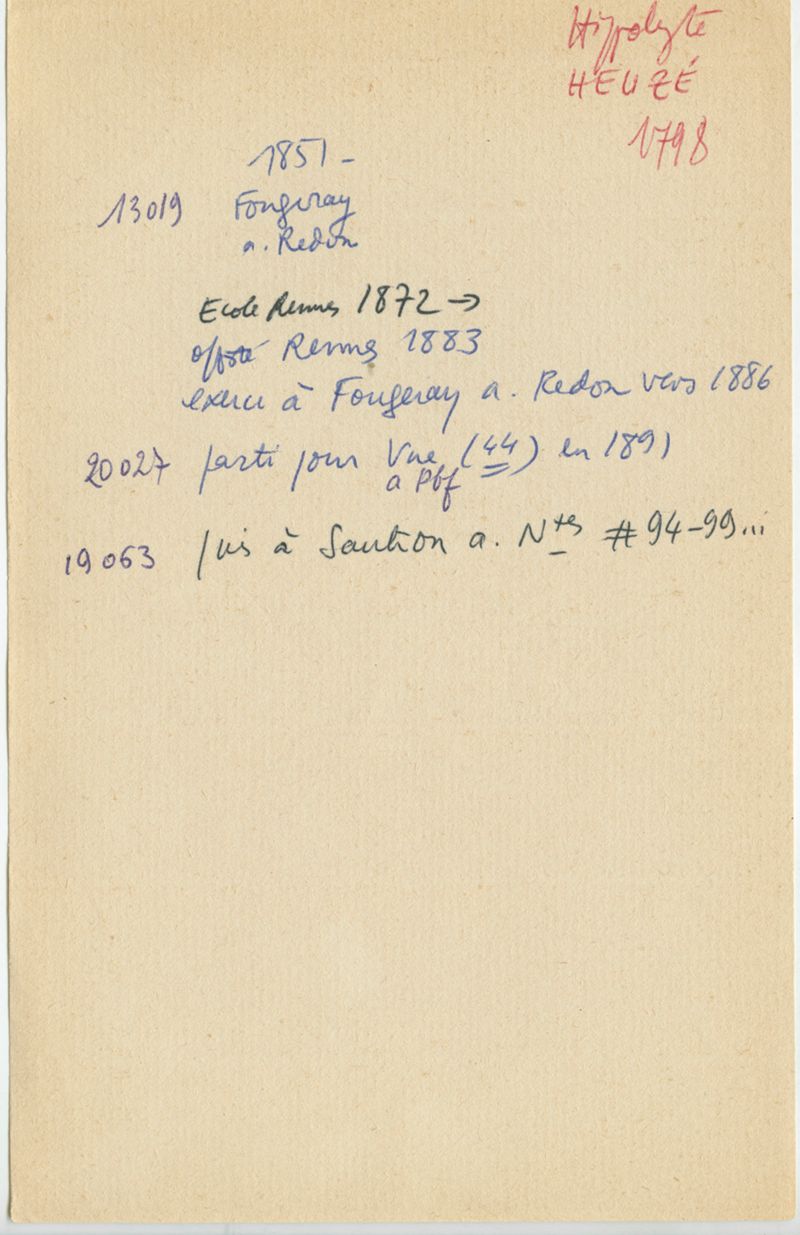 Hippolyte
HEUZÉ
1798
1851 -
13019 Fougeray
a. Redon
Ecole Rennes 1872 →
offsté Rennes 1883
exerce à Fougeray a. Redon vers 1886
20027 parti pour Vue (44) en 1891
a Pbf
19063 puis à Sautron a. Ntes # 94-99...